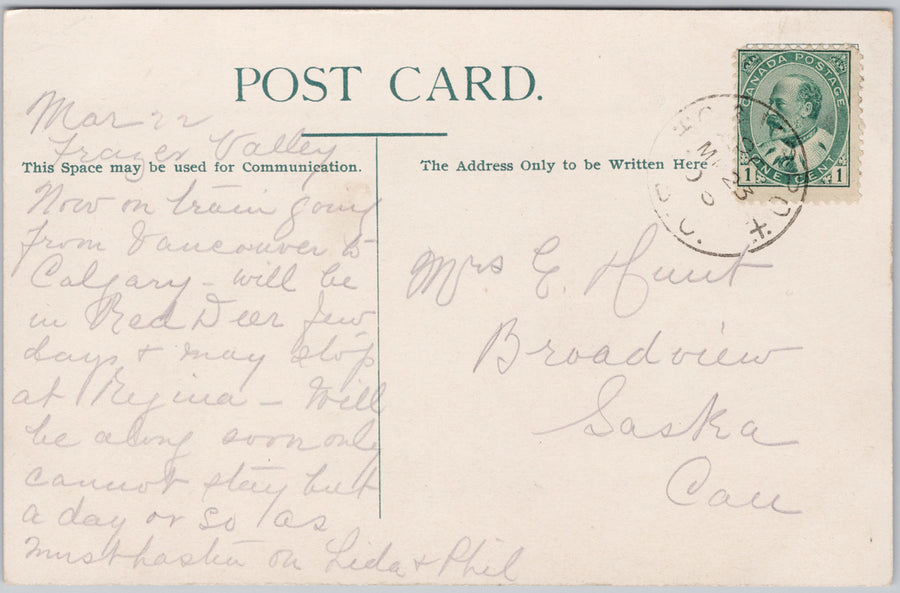 POST CARD.
Mar 22
Frazer Valley
This Space may be used for Communication.
Now on train going
from Vancouver to
Calgary - will be
in Red Deer few
days & may stop
at Regina - Will
be along soon only
cannot stay but
a day or so as
must hasten on Lida & Phil
The Address Only to be Written Here
Mrs E. Hunt
Broadview
Saska
Can
CANADA POSTAGE
1 ONE CENT 1
MR 23
B.C.